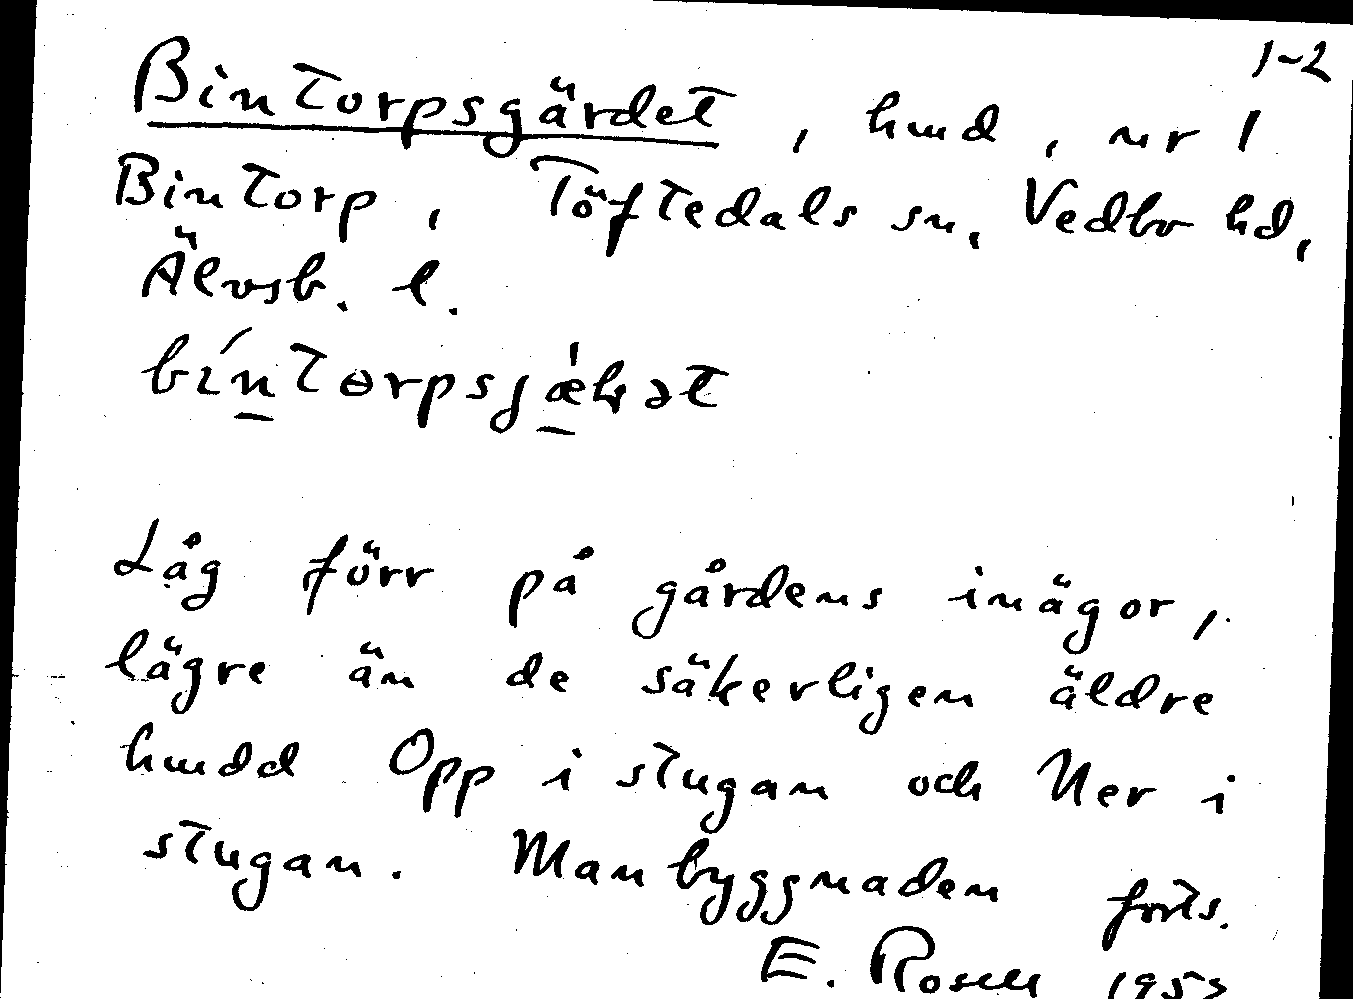 1-2
Bintorpsgärdet, hmd, nr 1
Bintorp, Töftedals sn, Vedbo hd,
Älvsb. l.
Låg förr på gårdens inägor,
lägre än de säkerligen äldre
hmdd Opp i stugan och Ner i
stugan. Manbyggnaden forts.
E. Rosell